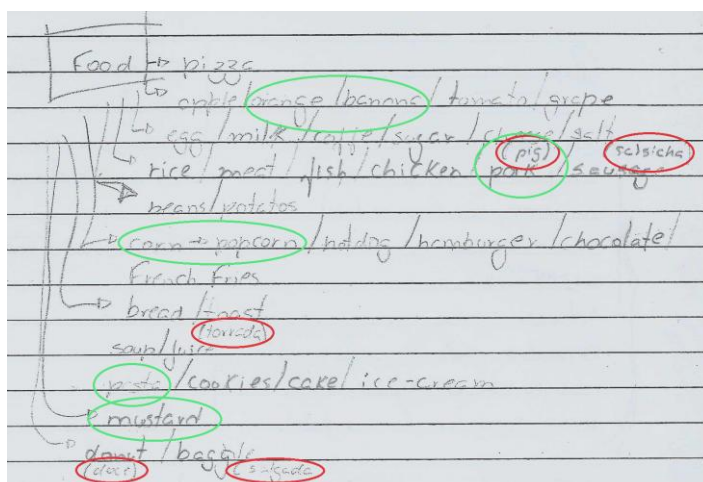 Food → pizza
→ apple/orange/banana/tomato/grape
→ egg/milk/coffe/sugar/cheese/salt
(pig) (salsicha)
→ rice/meat/fish/chicken/pork/sausage
→ beans/potatos
→ corn → popcorn/hotdog/hamburger/chocolate/
French Fries
→ bread/toast
(torrada)
soup/juice
pasta/cookies/cake/ice-cream
→ mustard
→ donut/baggle
(doce) (salgada